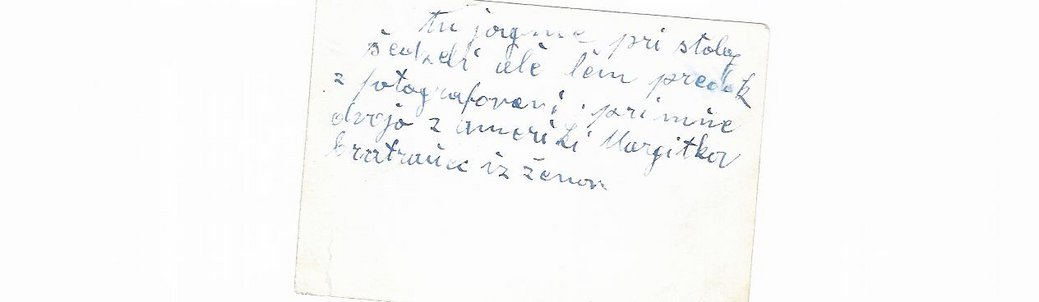 tu jozme pri stolog
šedzeľi ale lem predok
z fotografovani, pri mňe
dvojo z ameriki Margitkov
bratraňec iz ženov